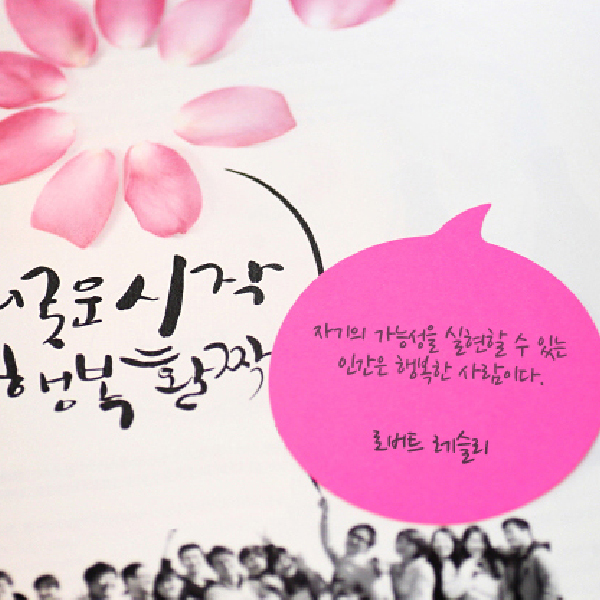 새로운 시작
행복 활짝
자기의 가능성을 실현할 수 있는
인간은 행복한 사람이다.
로버트 레슬리